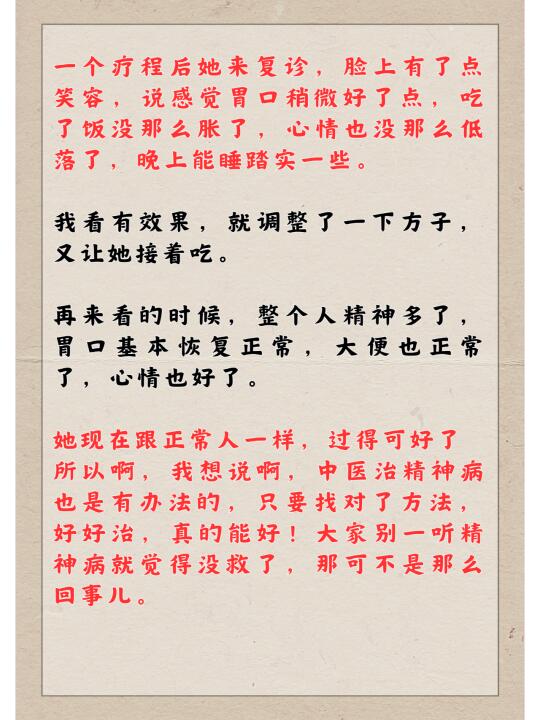 一个疗程后她来复诊，脸上有了点
笑容，说感觉胃口稍微好了点，吃
了饭没那么胀了，心情也没那么低
落了，晚上能睡踏实一些。
我看有效果，就调整了一下方子，
又让她接着吃。
再来看的时候，整个人精神多了，
胃口基本恢复正常，大便也正常
了，心情也好了。
她现在跟正常人一样，过得可好了
所以啊，我想说啊，中医治精神病
也是有办法的，只要找对了方法，
好好治，真的能好！大家别一听精
神病就觉得没救了，那可不是那么
回事儿。